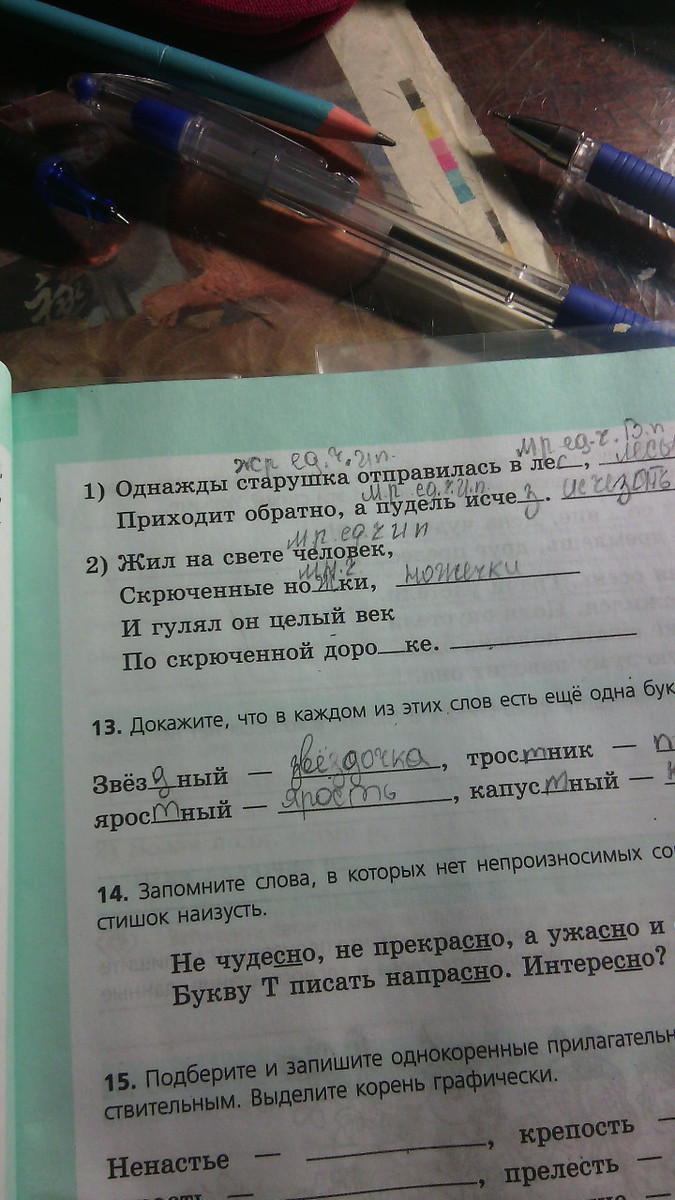 жр ед.ч.ип. мр ед.ч. В.п
1) Однажды старушка отправилась в лес, лесы
мр ед.ч.и.п.
Приходит обратно, а пудель исчез. исчезать
мр ед ч и п
2) Жил на свете человек,
мн.ч
Скрюченные ножки, ножечки
И гулял он целый век
По скрюченной доро__ке. ______
13. Докажите, что в каждом из этих слов есть ещё одна бук
Звёздный — звёздочка, тростник —
яростный — ярость, капустный —
14. Запомните слова, в которых нет непроизносимых со
стишок наизусть.
Не чудесно, не прекрасно, а ужасно и
Букву Т писать напрасно. Интересно?
15. Подберите и запишите однокоренные прилагатель
ствительным. Выделите корень графически.
Ненастье — ______, крепость —
— ______, прелесть —